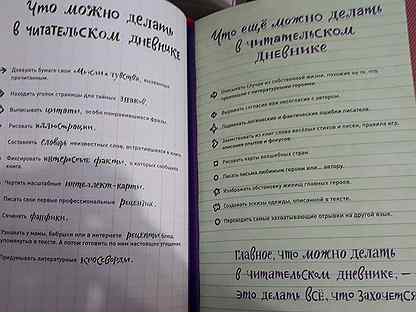 Что можно делать
в читательском
дневнике
Доверять бумаге свои мысли и чувства, вызванные
прочитанным.
Находить уголок страницы для тайных знаков.
Выписывать цитаты, особо понравившиеся фразы.
Рисовать иллюстрации.
Составлять словарь неизвестных слов, встретившихся в книге.
Фиксировать интересные факты, о которых сообщила
книга.
Чертить масштабные интеллект-карты.
Писать свои первые профессиональные рецензии.
Сочинять фанфики.
Узнавать у мамы, бабушки или в интернете рецепты блюд,
упомянутых в тексте. А потом готовить по ним настоящее угощение.
Придумывать литературные кроссворды.
Что ещё можно делать
в читательском
дневнике
Описывать случаи из собственной жизни, похожие на то, что
произошло с литературными героями.
Выражать согласие или несогласие с автором.
Подмечать логические и фактические ошибки писателя.
Заимствовать из книг слова весёлых стихов и песен, правила игр,
описания опытов и фокусов.
Рисовать карты волшебных стран.
Писать письма любимым героям или... автору.
Изображать обстановку жилищ главных героев.
Создавать эскизы одежды, описанной в тексте.
Переводить самые захватывающие отрывки на другой язык.
Главное, что можно делать
в читательском дневнике, —
это делать всё, что захочется